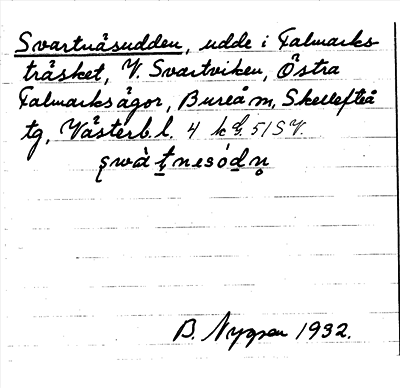 Svartnäsudden, udde i Falmarks-
träsket, V. Svartviken, Östra
Falmarks ägor, Bureå m, Skellefteå
tg, Västerb. l. 4 k 51 SV.
B. Nygren 1932.